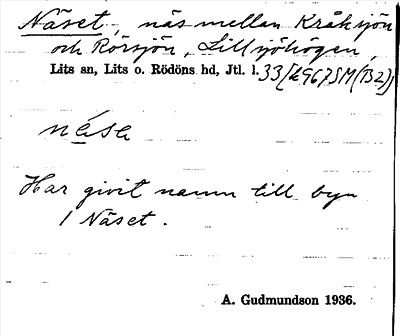 Näset, näs mellan Kråksjön
och Rörsjön, Lillsjöhögen,
Lits sn, Lits o. Rödöns hd, Jtl. l. 33/4967SM(B2)
Har givit namn till byn
1 Näset.
A. Gudmundson 1936.